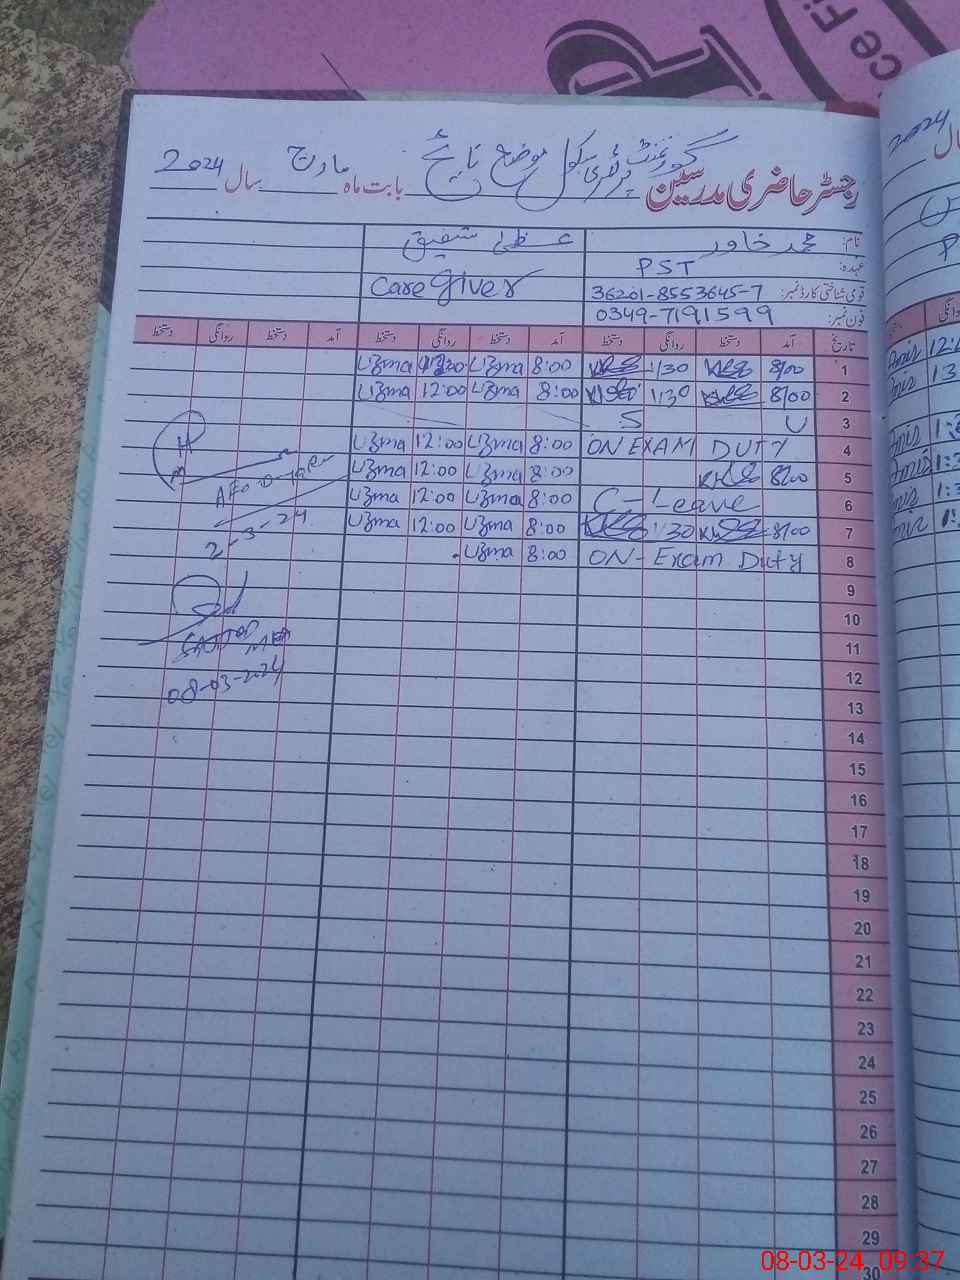 گورنمنٹ پرائمری سکول موضع
رجسٹر حاضری مدرسین بابت ماہ مارچ سال 2024
نام: محمد خاور عظمیٰ شفیق
عہدہ: PST Care giver
قومی شناختی کارڈ نمبر: 36201-8553645-7
فون نمبر: 0349-7191599
تاریخ آمد دستخط روانگی دستخط آمد دستخط روانگی دستخط آمد دستخط روانگی دستخط
1 8/00 1/30 8:00 Uzma Uzma
2 8/00 1/30 8:00 Uzma 12:00 Uzma
3 S U
4 ON EXAM DUTY 8:00 Uzma 12:00 Uzma
5 8/00 8:00 Uzma 12:00 Uzma
6 C-Leave 8:00 Uzma 12:00 Uzma
7 8/00 1/30 8:00 Uzma 12:00 Uzma
8 ON-Exam Duty 8:00 Uzma
9
10
11
12
13
14
15
16
17
18
19
20
21
22
23
24
25
26
27
28
29
30
2-3-24
08-03-2024
2024
سال
08-03-24, 09:37